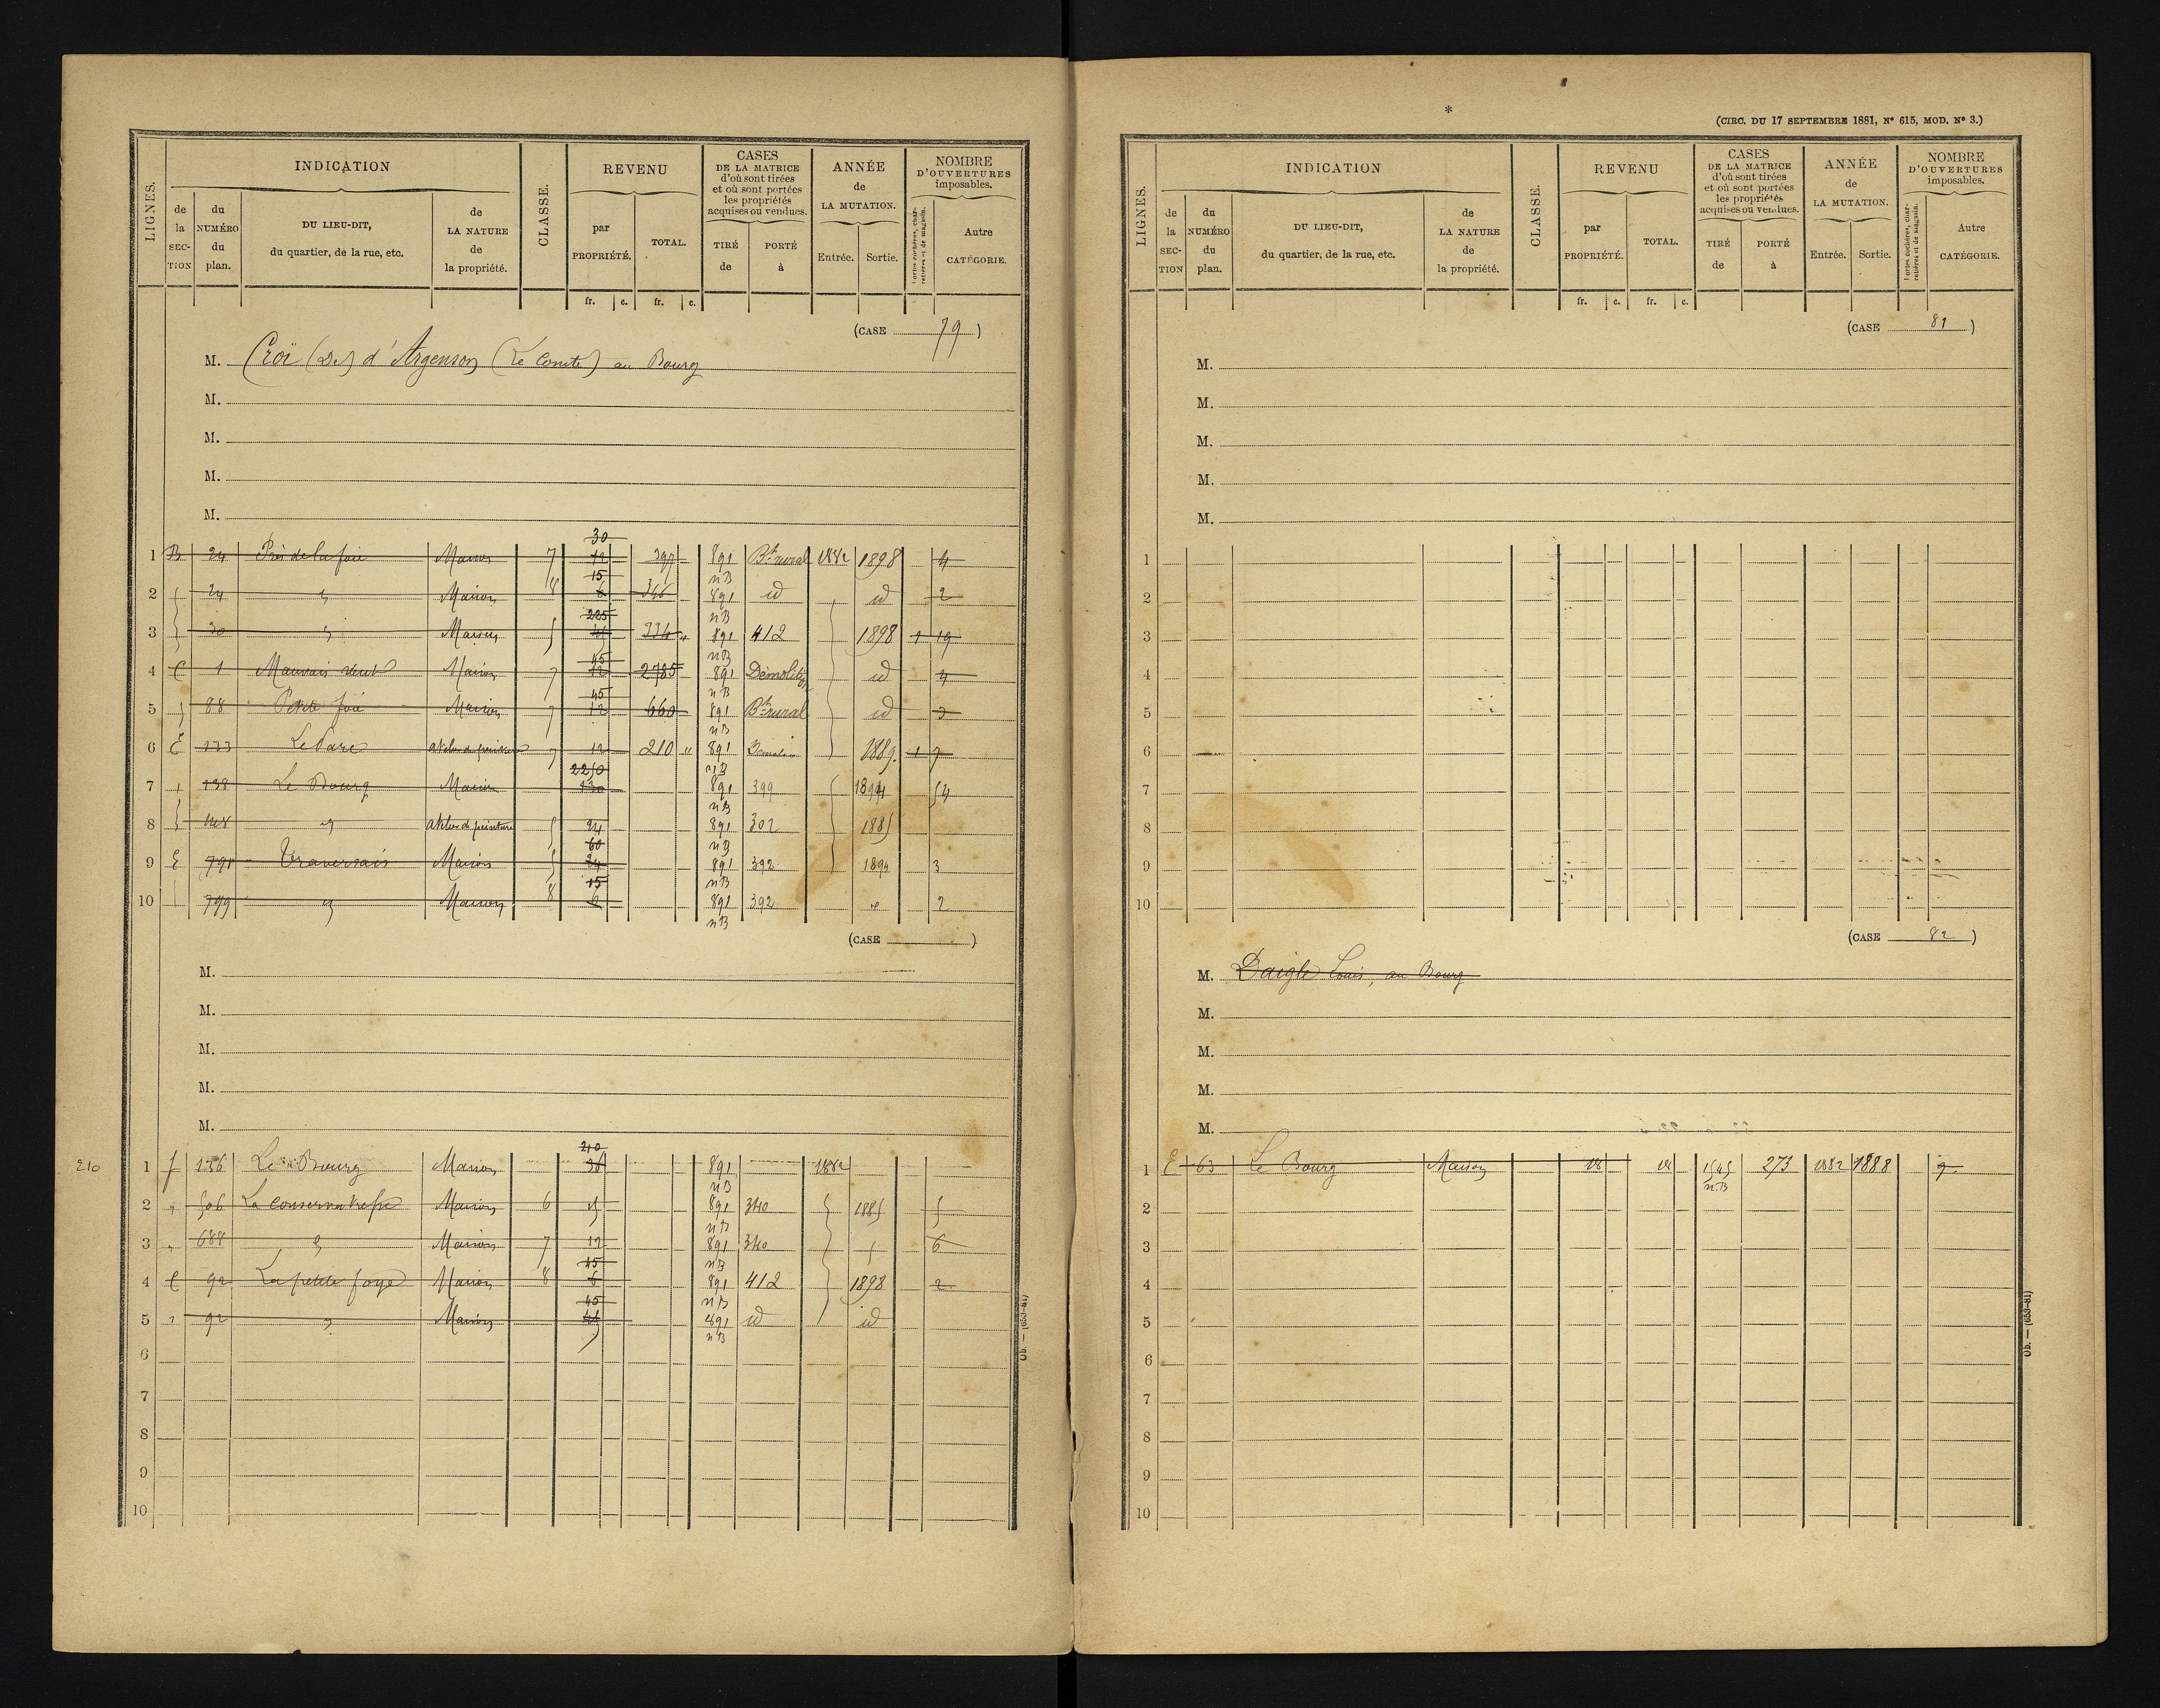 (CIRC. DU 17 SEPTEMBRE 1881, Nº 615, MOD. Nº 3.)
LIGNES.
INDICATION
de la SECTION
du NUMÉRO du plan.
DU LIEU-DIT, du quartier, de la rue, etc.
de LA NATURE de la propriété.
CLASSE.
REVENU
par PROPRIÉTÉ.
TOTAL.
CASES DE LA MATRICE d'où sont tirées et où sont portées les propriétés acquises ou vendues.
TIRÉ de
PORTÉ à
ANNÉE de LA MUTATION.
Entrée.
Sortie.
NOMBRE D'OUVERTURES imposables.
Portes cochères, charretières et de magasin.
Autre CATÉGORIE.
fr. c. fr. c.
(CASE 79)
M. Croï (De) d'Argenson (Le Comte) au Bourg
M.
M.
M.
M.
1 B 24 Maison 7 30 12 397 891 nB Bt rural 1882 1898 4
2 24 Maison 8 15 6 346 891 nB id id 2
3 30 Maison 5 225 891 nB 412 1898 1 19
4 C 1 Mauvais Maison 7 45 12 2785 891 nB Démolition id 4
5 88 Petite foie Maison 7 45 12 660 891 nB Bt rural id 3
6 E 133 Le Parc atelier de peinture 7 12 210 " 891 nB 1889 1 7
7 138 Le Bourg Maison 2250 130 891 nB 399 1894 54
8 148 atelier de peinture 5 24 891 nB 302 1885
9 E 791 Traversais Maison 5 60 24 891 nB 392 1894 3
10 799 Maison 8 15 6 891 nB 392 2
(CASE )
M.
M.
M.
M.
M.
210
1 136 Le Bourg Maison 210 36 891 nB 1882
2 506 Maison 6 15 891 nB 340 1885 5
3 688 Maison 7 12 891 nB 340 6
4 C 92 La petite foye Maison 8 45 6 891 nB 412 1898 2
5 92 Maison 45 891 nB id id
6
7
8
9
10
Ob. — (653-81)
LIGNES.
INDICATION
de la SECTION
du NUMÉRO du plan.
DU LIEU-DIT, du quartier, de la rue, etc.
de LA NATURE de la propriété.
CLASSE.
REVENU
par PROPRIÉTÉ.
TOTAL.
CASES DE LA MATRICE d'où sont tirées et où sont portées les propriétés acquises ou vendues.
TIRÉ de
PORTÉ à
ANNÉE de LA MUTATION.
Entrée.
Sortie.
NOMBRE D'OUVERTURES imposables.
Portes cochères, charretières et de magasin.
Autre CATÉGORIE.
fr. c. fr. c.
(CASE 81)
M.
M.
M.
M.
M.
1
2
3
4
5
6
7
8
9
10
(CASE 82)
M. Daigle Louis, au Bourg
M.
M.
M.
M.
1 E 63 Le Bourg Maison 18 18 1545 nB 273 1882 1888
2
3
4
5
6
7
8
9
10
Ob. — (653-81)